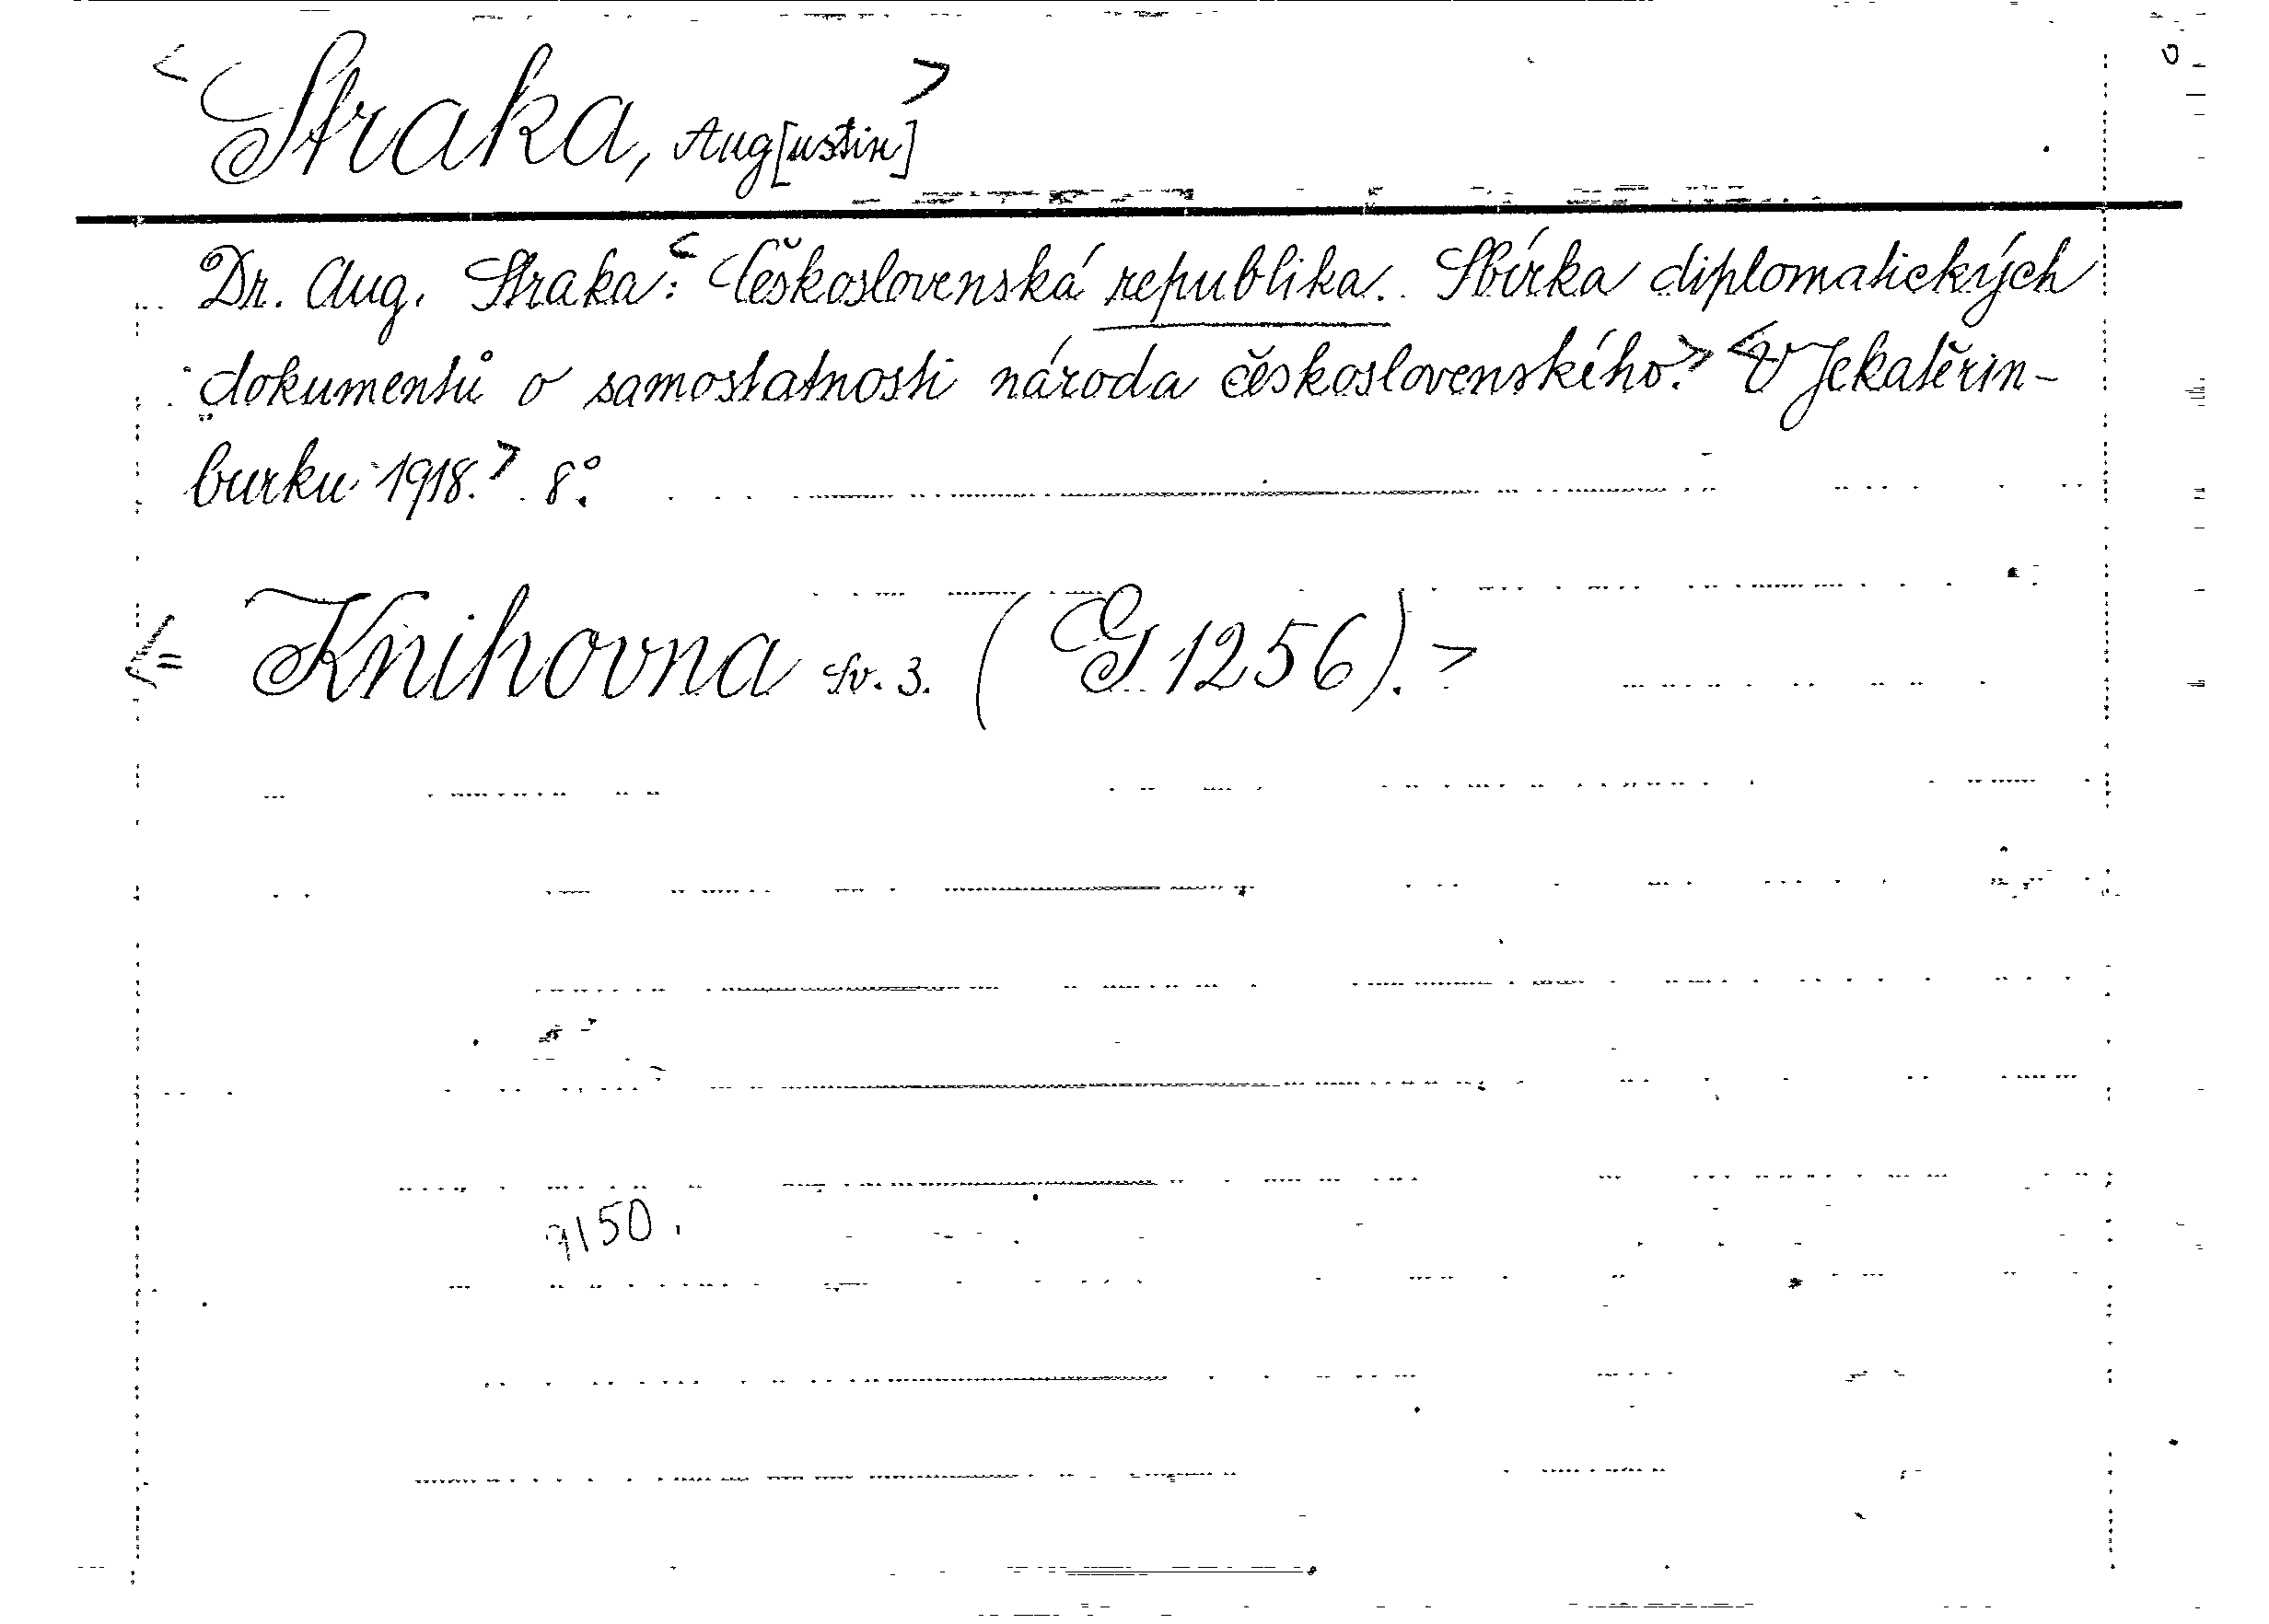 < Straka, Aug[ustin] >
Dr. Aug. Straka: < Československá republika. Sbírka diplomatických
dokumentů o samostatnosti národa československého. > < V Jekatěrin-
burku 1918. > 8°.
= Knihovna sv. 3. ( G 1256). >
9150.